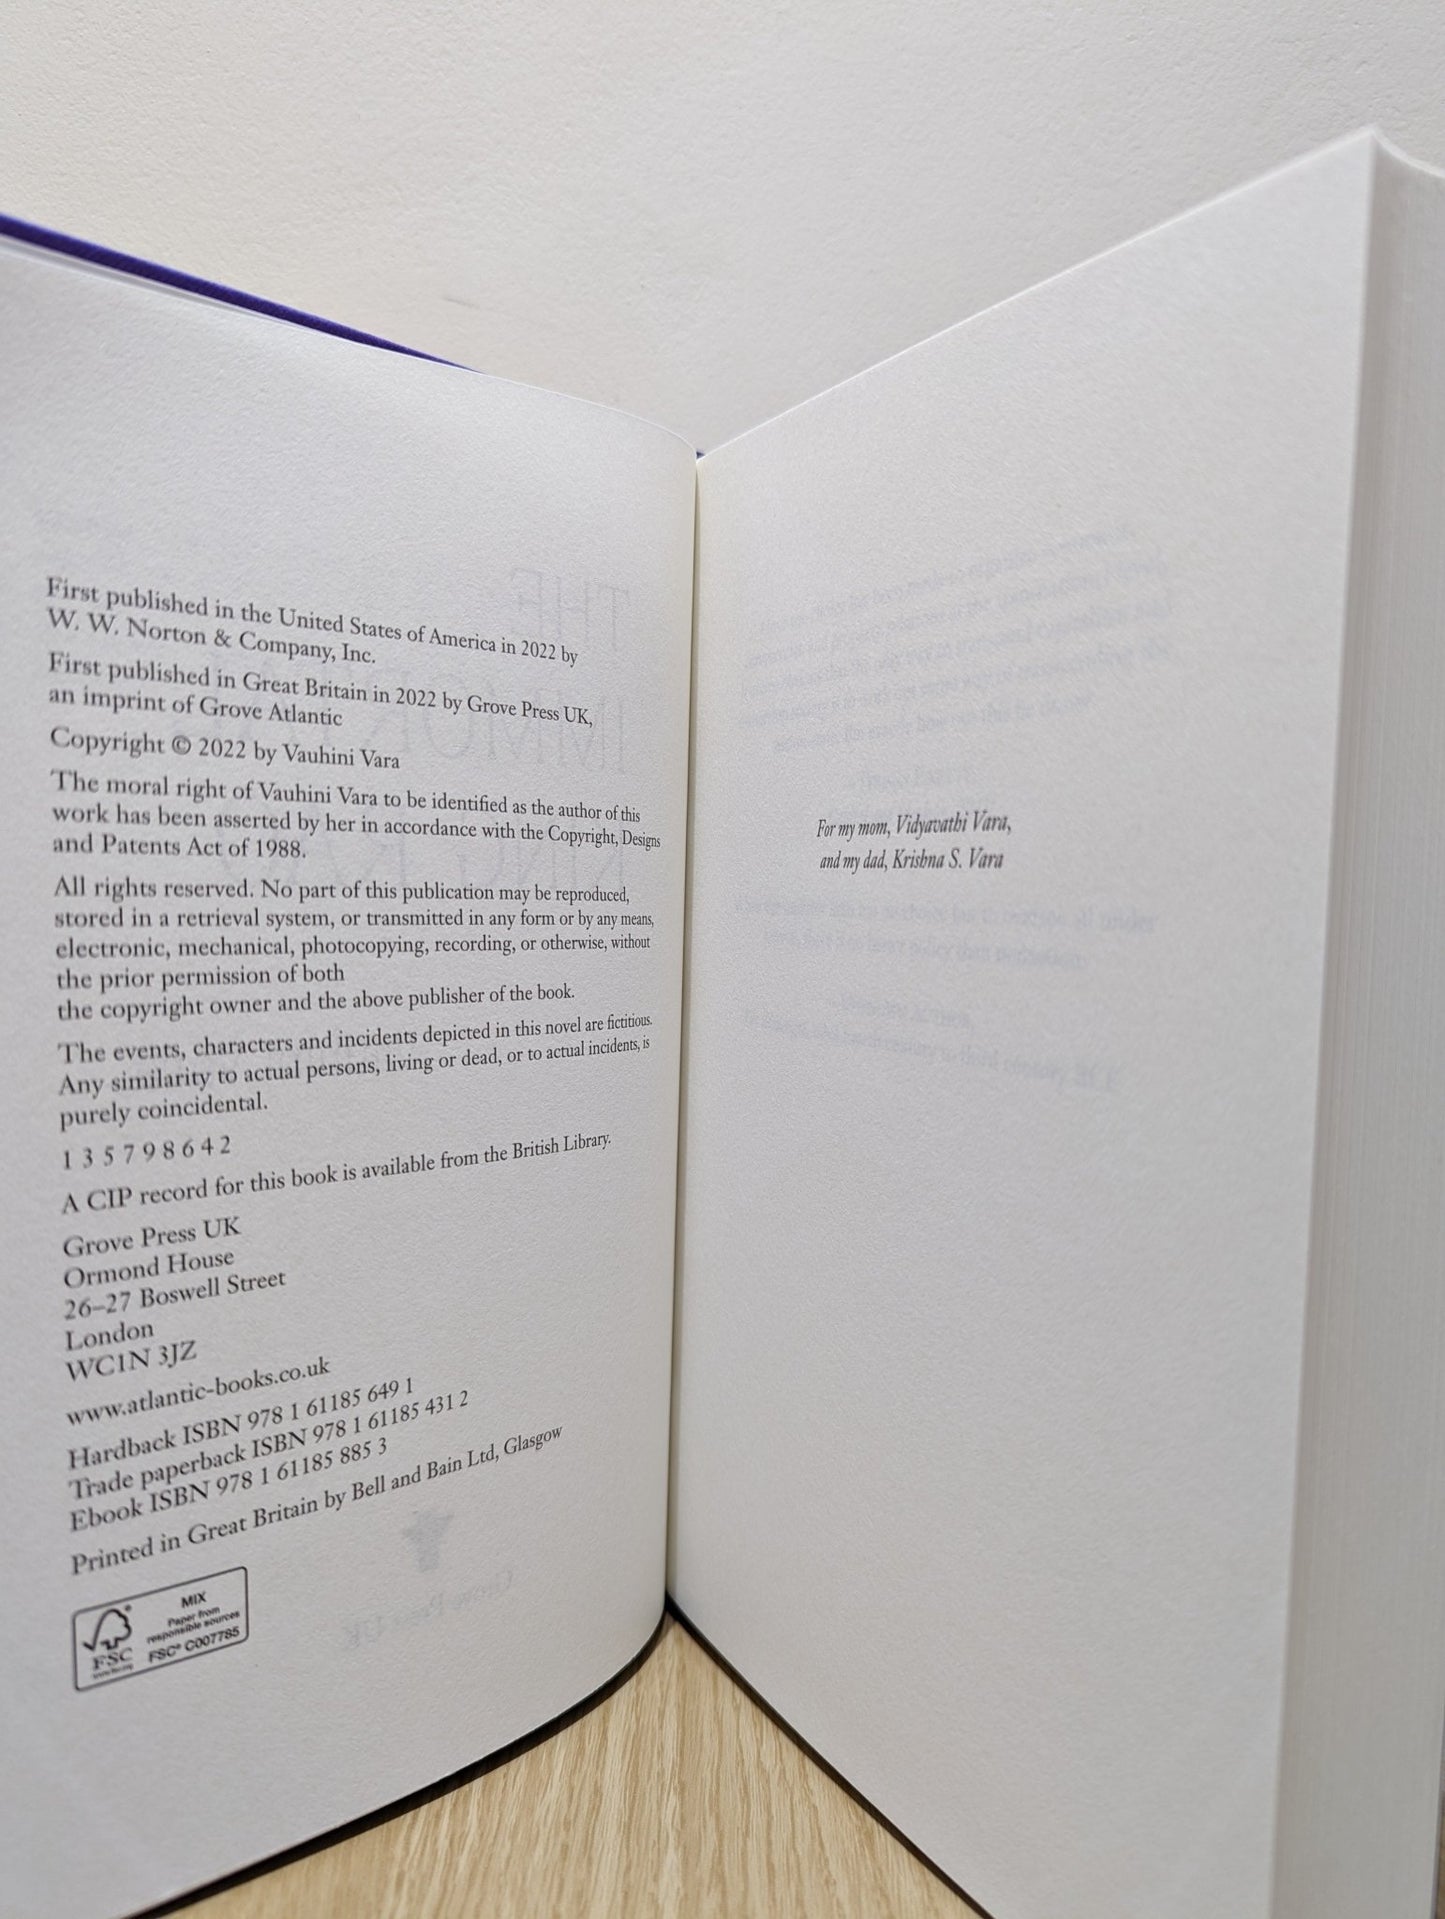 First published in the United States of America in 2022 by
W. W. Norton & Company, Inc.
First published in Great Britain in 2022 by Grove Press UK,
an imprint of Grove Atlantic
Copyright © 2022 by Vauhini Vara
The moral right of Vauhini Vara to be identified as the author of this
work has been asserted by her in accordance with the Copyright, Designs
and Patents Act of 1988.
All rights reserved. No part of this publication may be reproduced,
stored in a retrieval system, or transmitted in any form or by any means,
electronic, mechanical, photocopying, recording, or otherwise, without
the prior permission of both
the copyright owner and the above publisher of the book.
The events, characters and incidents depicted in this novel are fictitious.
Any similarity to actual persons, living or dead, or to actual incidents, is
purely coincidental.
1 3 5 7 9 8 6 4 2
A CIP record for this book is available from the British Library.
Grove Press UK
Ormond House
26–27 Boswell Street
London
WC1N 3JZ
www.atlantic-books.co.uk
Hardback ISBN 978 1 61185 649 1
Trade paperback ISBN 978 1 61185 431 2
Ebook ISBN 978 1 61185 885 3
Printed in Great Britain by Bell and Bain Ltd, Glasgow
MIX
Paper from
responsible sources
FSC® C007785
FSC
For my mom, Vidyavathi Vara,
and my dad, Krishna S. Vara